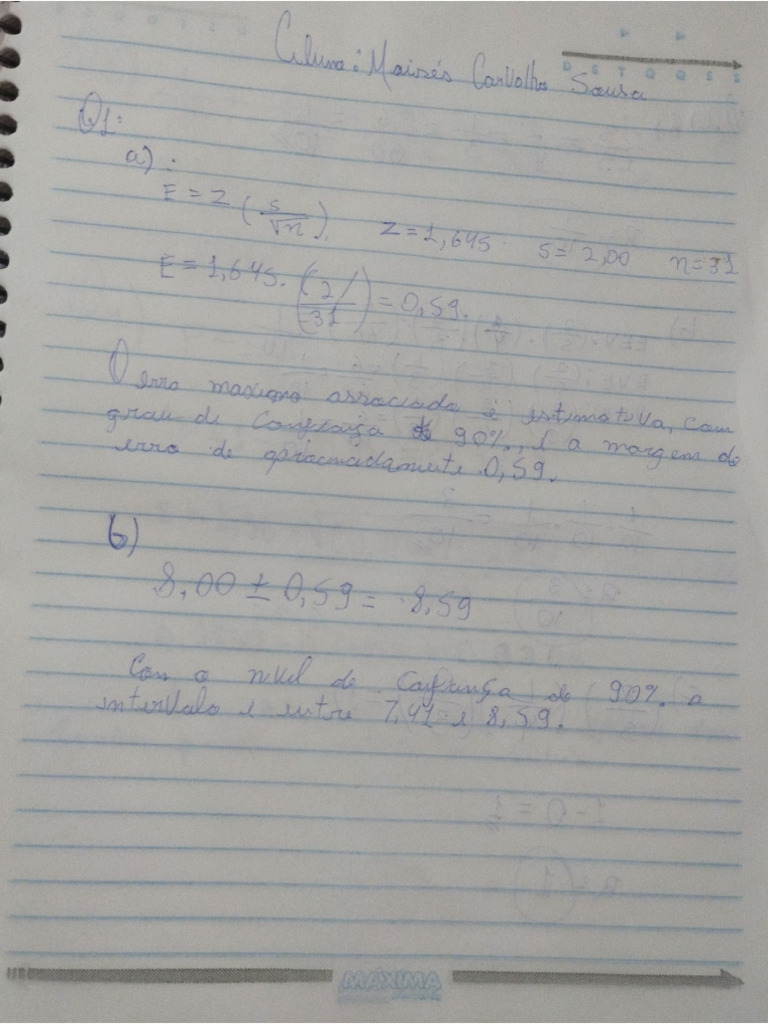 Aluno: Moisés Carvalho Sousa
D S T Q Q S S
Q1:
a):
E = Z (s/√n) Z = 1,645 s = 2,00 n = 31
E = 1,645. (2/31) = 0,59.
O erro maximo associado é estimativa, com
grau de Confiança de 90%, é a margem de
erro de aproximadamente 0,59.
b)
8,00 ± 0,59 = 8,59
Com o nivel de Confiança de 90% o
intervalo é entre 7,41 e 8,59.
MÁXIMA